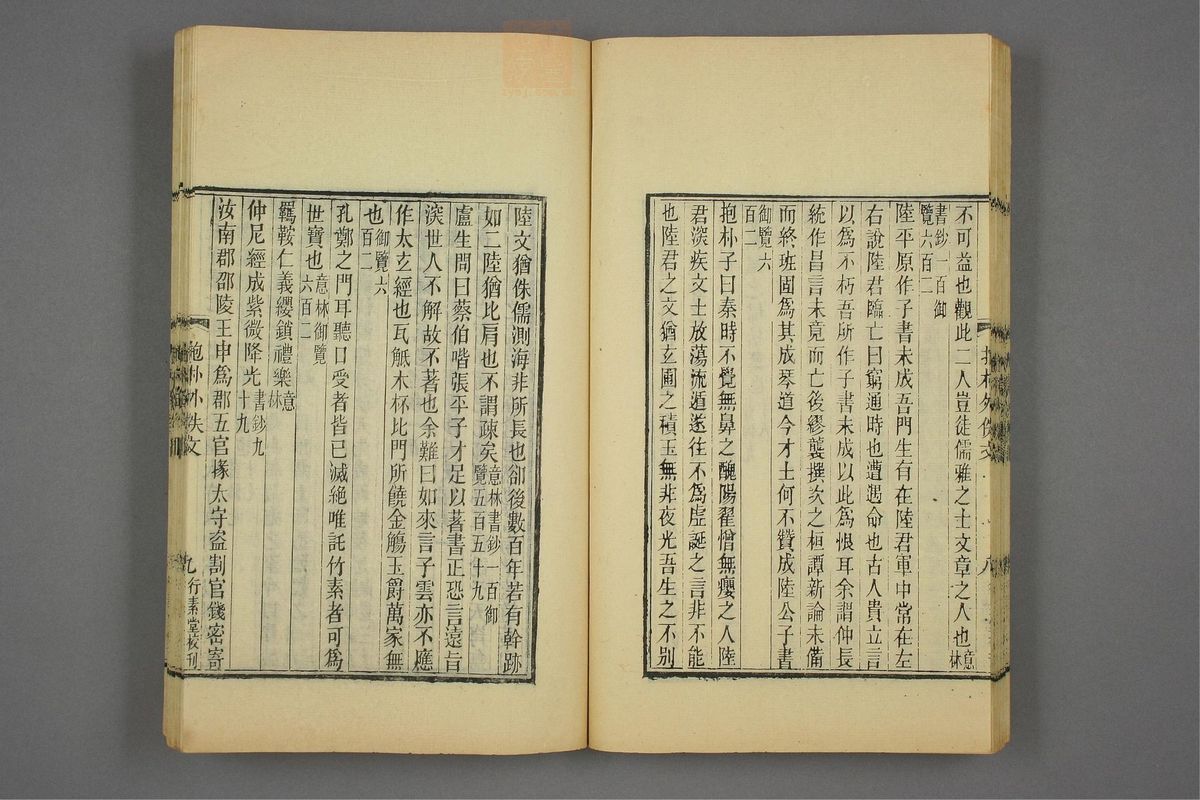 不可益也觀此二人豈徒儒雅之士文章之人也意林
書鈔一百御覽六百二
陸平原作子書未成吾門生有在陸君軍中常在左
右說陸君臨亡曰窮通時也遭遇命也古人貴立言
以為不朽吾所作子書未成以此為恨耳余謂仲長
統作昌言未竟而亡後繆襲撰次之桓譚新論未備
而終班固爲其成琴道今才士何不贊成陸公子書
御覽六百二
抱朴子曰秦時不覺無鼻之醜陽翟憎無癭之人陸
君深疾文士放蕩流遁遂往不爲虛誕之言非不能
也陸君之文猶玄圃之積玉無非夜光吾生之不別
抱朴外佚文
八
陸文猶侏儒測海非所長也卻後數百年若有幹跡
如二陸猶比肩也不謂疎矣意林書鈔一百御覽五百五十九
盧生問曰蔡伯喈張平子才足以著書正恐言遠旨
深世人不解故不著也余難曰如來言子雲亦不應
作太玄經也瓦甒木杯比門所饒金觴玉爵萬家無
也御覽六百二
孔鄭之門耳聽口受者皆已滅絕唯託竹素者可爲
世寶也意林御覽六百二
羈鞍仁義纓鎖禮樂意林
仲尼經成紫微降光書鈔九十九
汝南郡邵陵王申爲郡五官掾太守盜割官錢密寄
抱朴外佚文
九
行素堂校刊